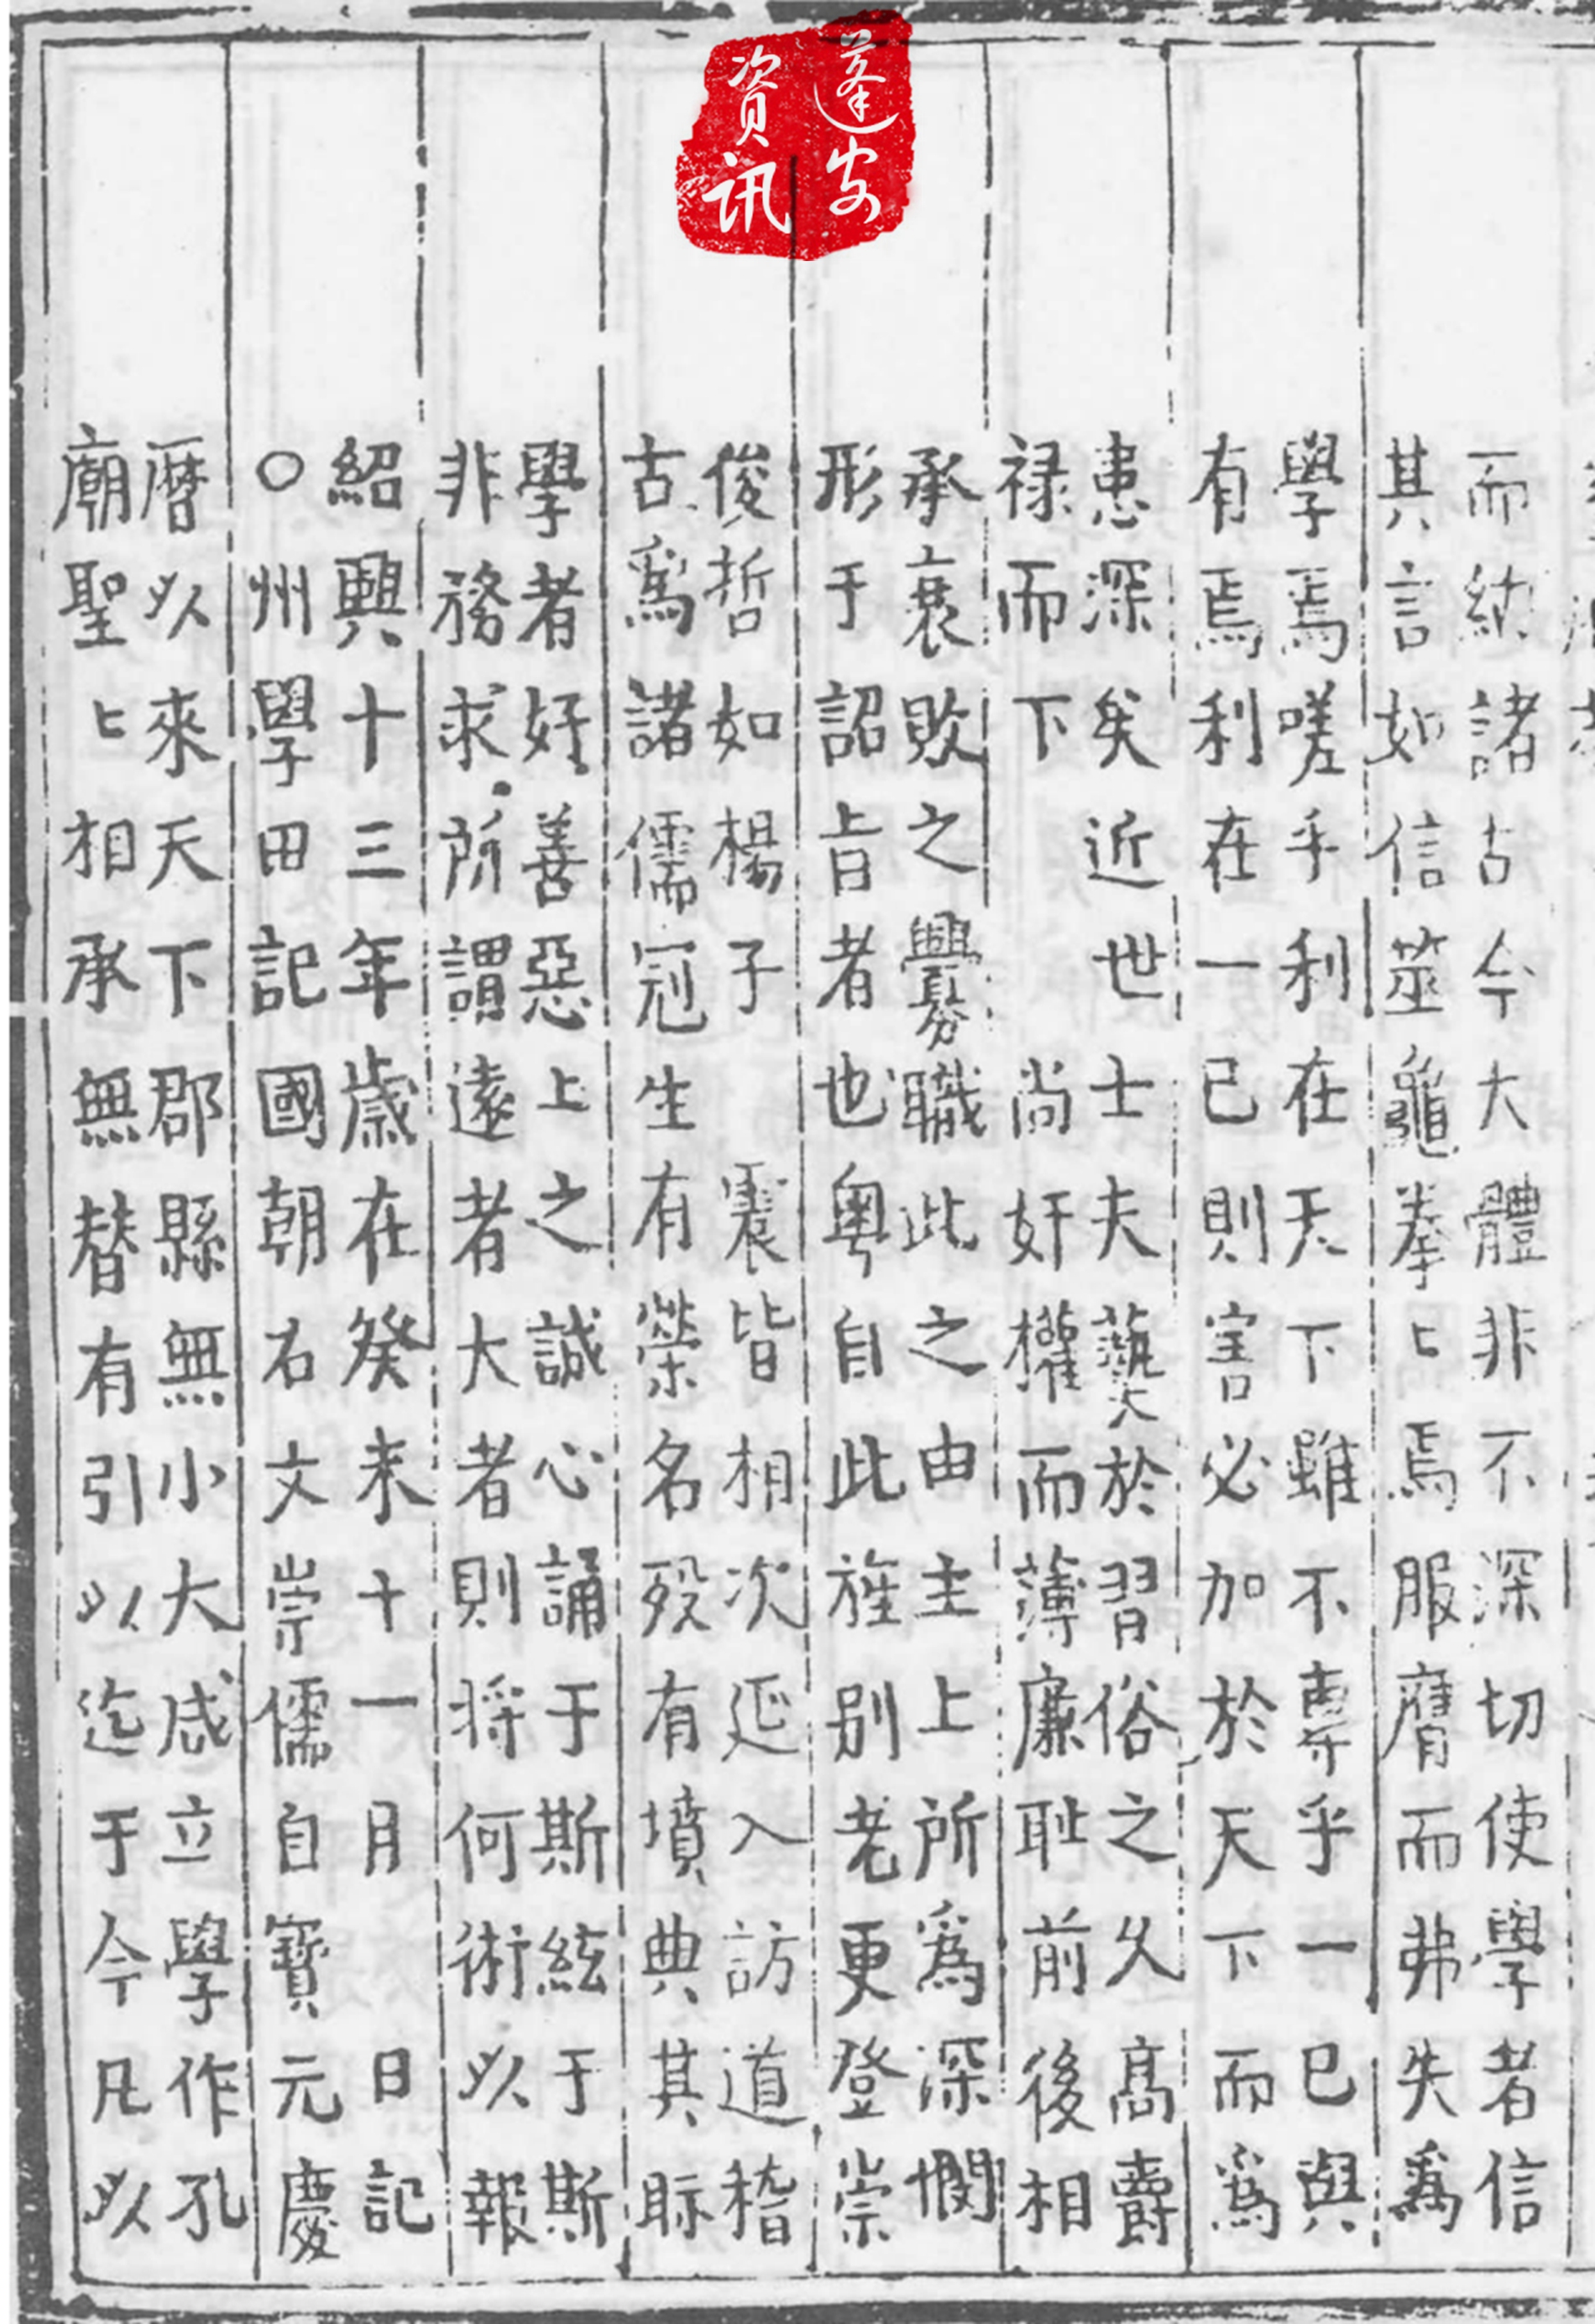 蓬安
資訊
而紬諸古今大體非不深切使學者信
其言如信筮龜拳匕焉服膺而弗失爲
學焉嗟乎利在天下雖不專乎一已與
有焉利在一已則害必加於天下而爲
患深矣近世士夫藝於習俗之久高爵
禄而下尚奸權而薄廉耻前後相
承衰敗之釁職此之由主上所爲深憫
形于詔旨者也粤自此旌别老更登崇
俊哲如楊子震皆相次延入訪道稽
古爲諸儒冠生有榮名殁有墳典其眎
學者好善惡上之誠心誦于斯絃于斯
非務求所謂遠者大者則將何術以報
紹興十三年歲在癸未十一月日記
○州學田記國朝右文崇儒自寳元慶
曆以來天下郡縣無小大咸立學作孔
廟聖匕相承無替有引以迄于今凡以